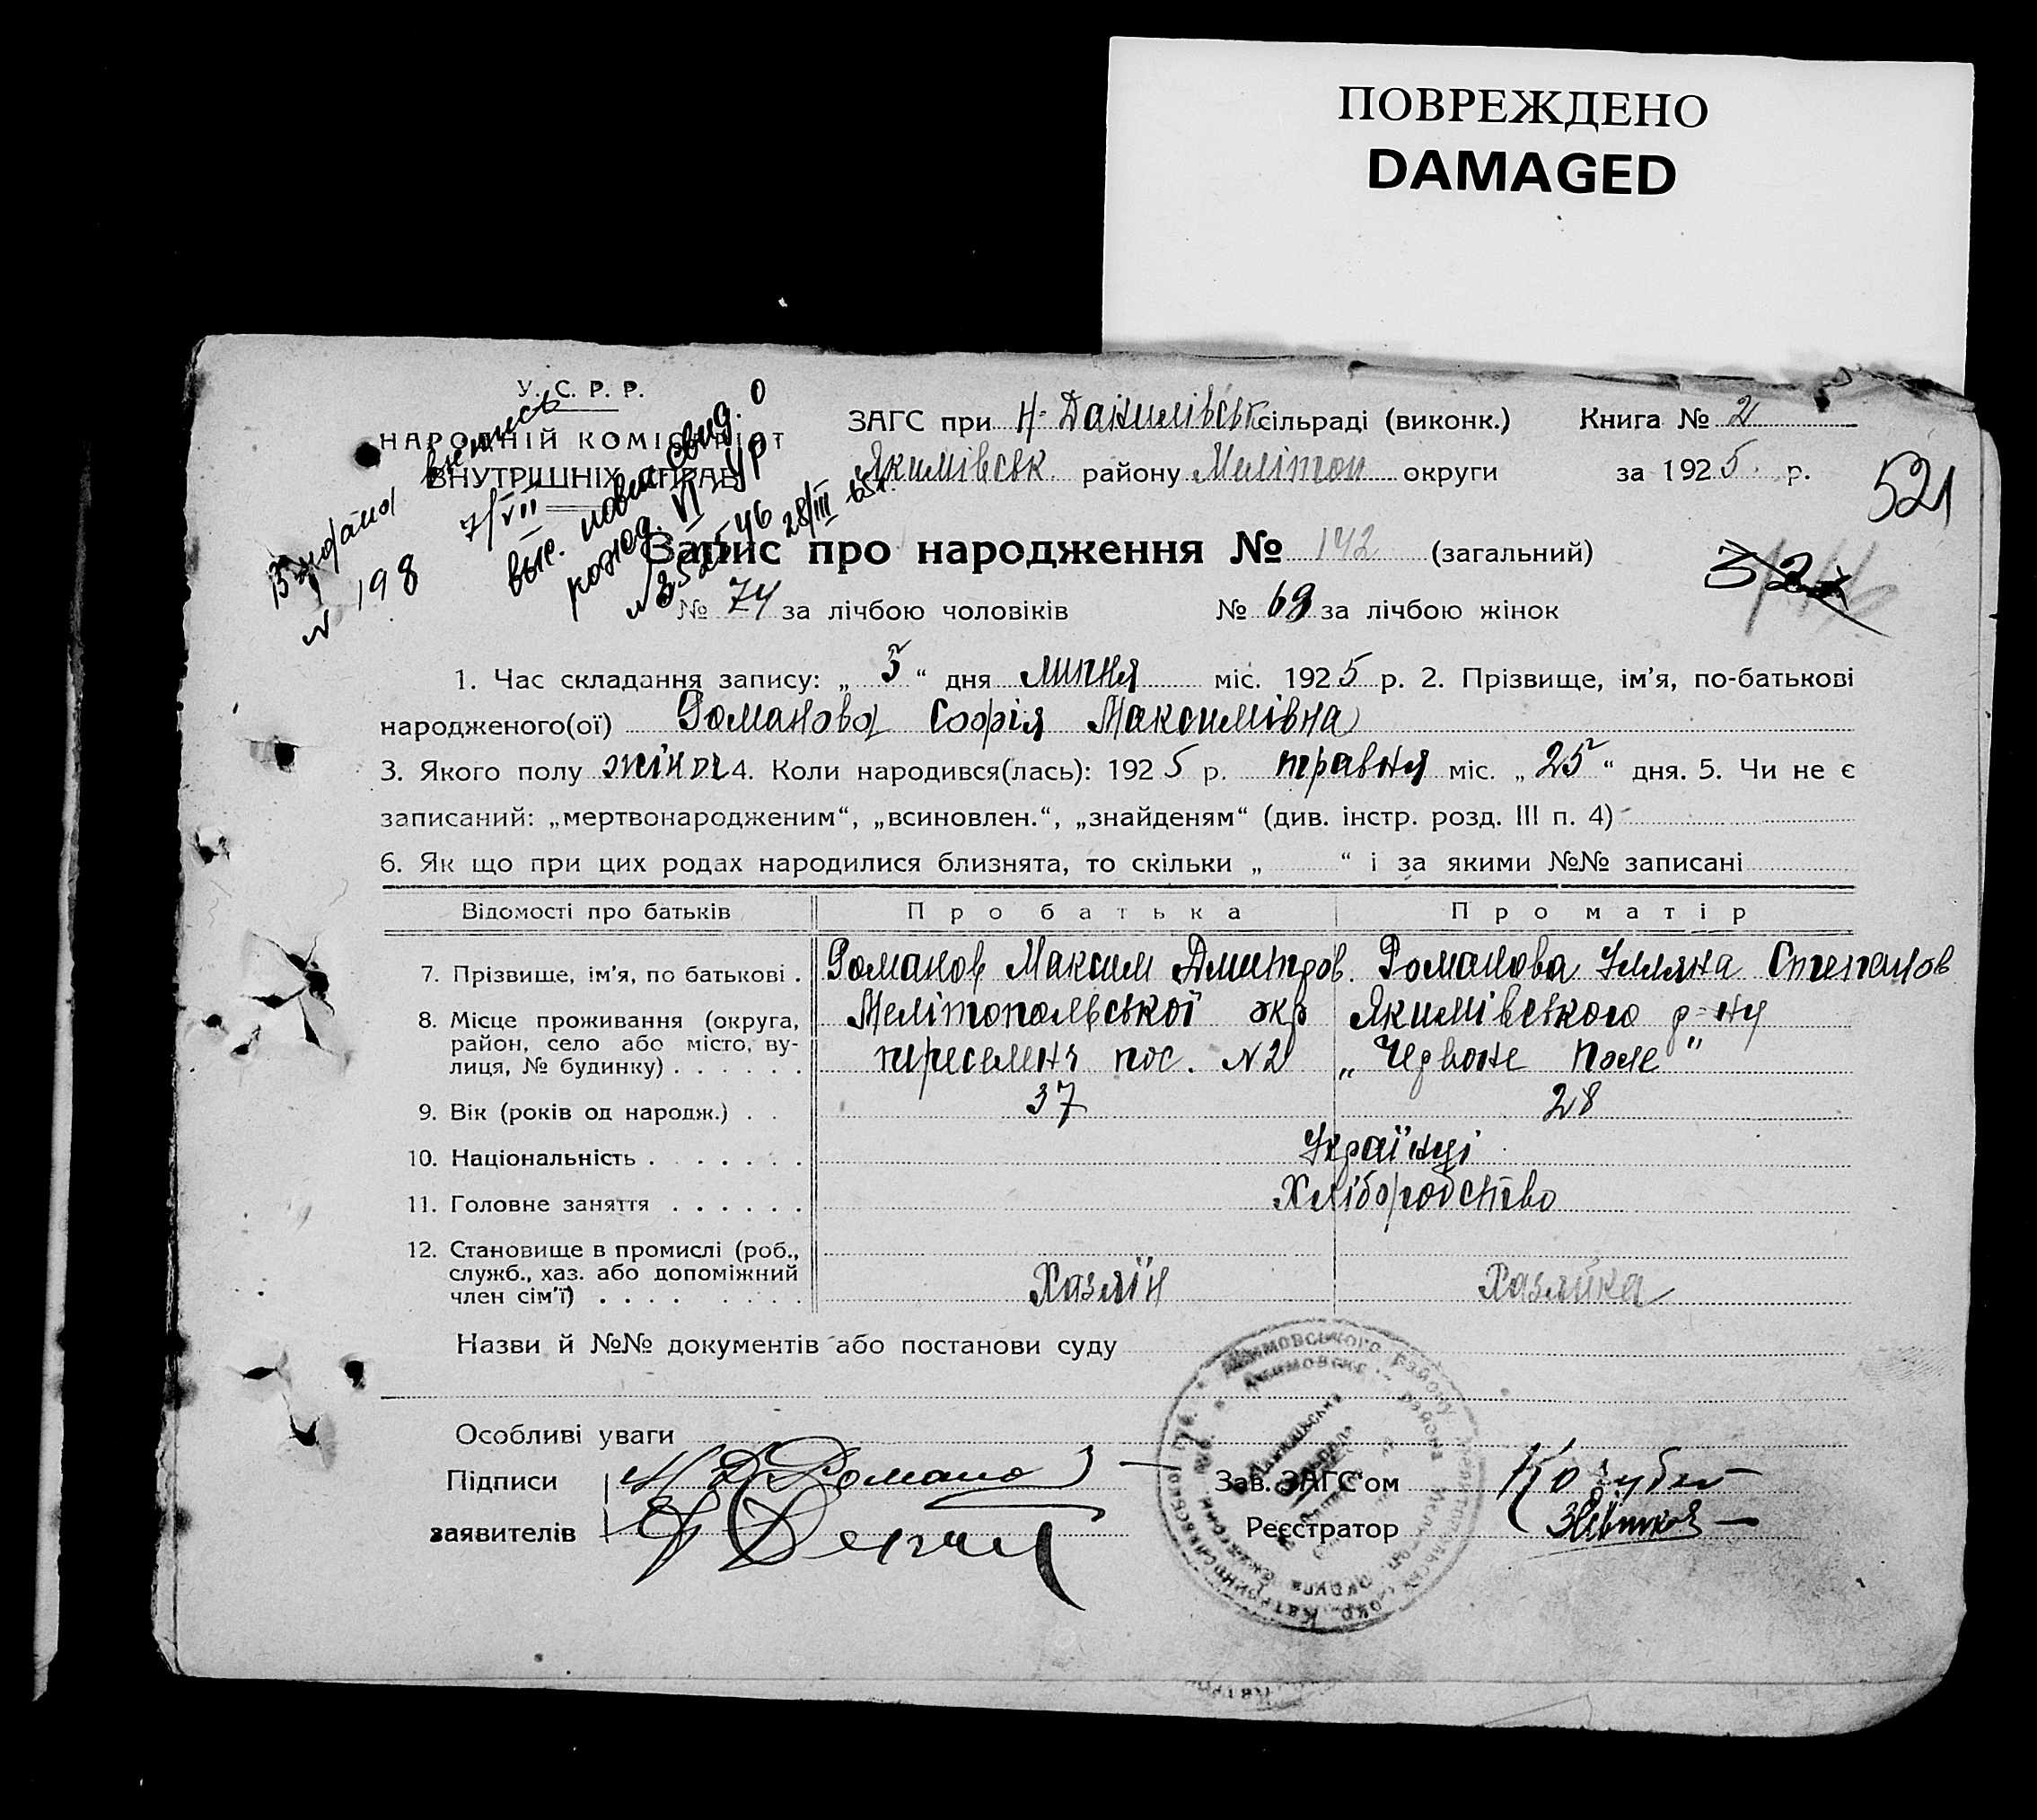 ПОВРЕЖДЕНО
DAMAGED
У. С. Р. Р.
НАРОДНІЙ КОМІСАРІЯТ
ВНУТРІШНІХ СПРАВ
198
7/VII
28/III
ЗАГС при Н-Данилівськ сільраді (виконк.) Книга № 2
Якимівськ району Мелітоп округи за 1925 р.
521
Запис про народження № 142 (загальний)
№ 74 за лічбою чоловіків № 68 за лічбою жінок
1. Час складання запису: „ 5 “ дня липня міс. 1925 р. 2. Прізвище, ім’я, по-батькові
народженого(ої) Романова Софія Максимівна
3. Якого полу жіноч 4. Коли народився(лась): 1925 р. травня міс. „ 25 “ дня. 5. Чи не є
записаний: „мертвонародженим“, „всиновлен.“, „знайденям“ (див. інстр. розд. III п. 4)
6. Як що при цих родах народилися близнята, то скільки „ “ і за якими №№ записані
Відомості про батьків Про батька Про матір
7. Прізвище, ім’я, по батькові . Романов Максим Дмитров. Романова Уляна Степанов
8. Місце проживання (округа, Мелітопольської окр Якимівського р-ну
район, село або місто, ву-
лиця, № будинку) . . . . . . переселенч пос. №2 „Червоне Поле"
9. Вік (років од народж.) . . 37 28
10. Національність . . . . . . . Українці
11. Головне заняття . . . . . . Хліборобство
12. Становище в промислі (роб.,
служб., хаз. або допоміжний Хазяїн Хазяйка
член сім’ї) . . . . . . . .
Назви й №№ документів або постанови суду
Особливі уваги
Підписи Романо Зав. ЗАГС'ом
заявителів Реєстратор